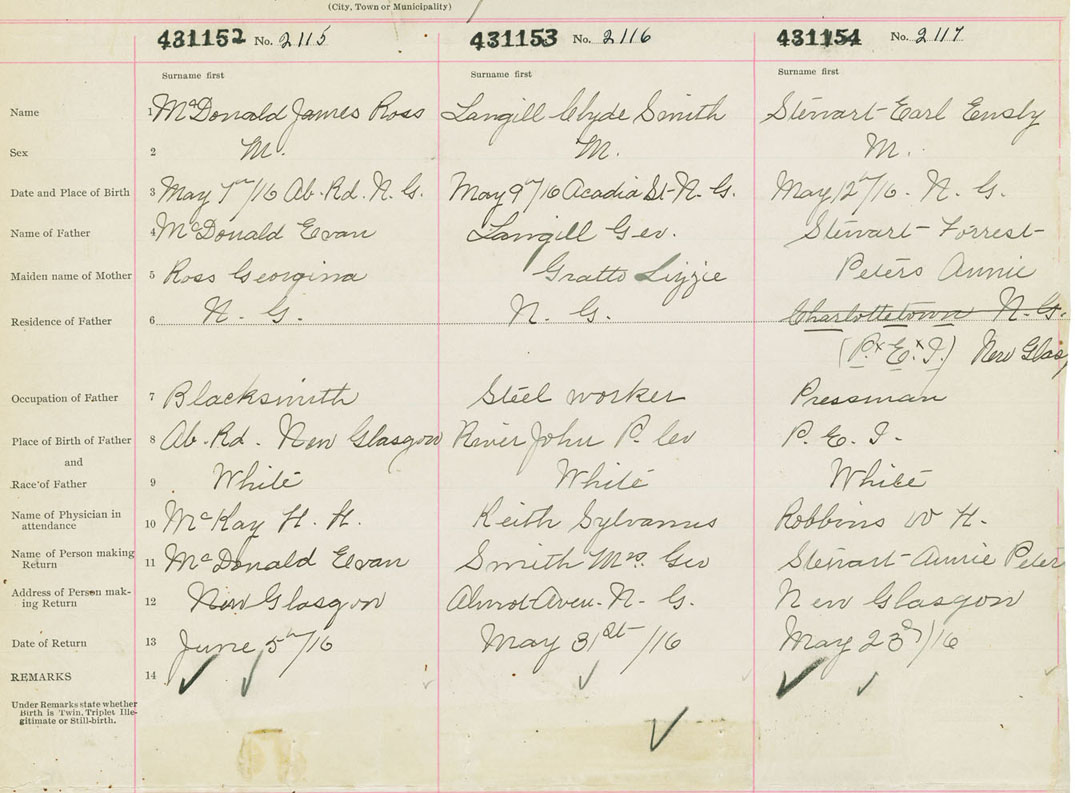 (City, Town or Municipality)
431152 No. 2115 431153 No. 2116 431154 No. 2117
Surname first Surname first Surname first
Name 1 McDonald James Ross Langill Clyde Smith Stewart Earl Ensly
Sex 2 M. M. M.
Date and Place of Birth 3 May 7th/16 Ab. Rd. N. G. May 9th/16 Acadia St. N. G. May 12th/16. N. G.
Name of Father 4 McDonald Evan Langill Geo. Stewart Forrest
Maiden name of Mother 5 Ross Georgina Gratto Lizzie Peters Annie
Residence of Father 6 N. G. N. G. Charlottetown N. G.
(P. E. I.) New Glas
Occupation of Father 7 Blacksmith Steel worker Pressman
Place of Birth of Father 8 Ab. Rd. New Glasgow River John P. Co P. E. I.
and
Race of Father 9 White White White
Name of Physician in
attendance 10 McKay H. H. Keith Sylvanus Robbins W H.
Name of Person making
Return 11 McDonald Evan Smith Mrs. Geo Stewart Annie Peter
Address of Person mak-
ing Return 12 New Glasgow Aven. N. G. New Glasgow
Date of Return 13 June 5th/16 May 31st/16 May 23d/16
REMARKS 14
Under Remarks state whether
Birth is Twin, Triplet Ille-
gitimate or Still-birth.